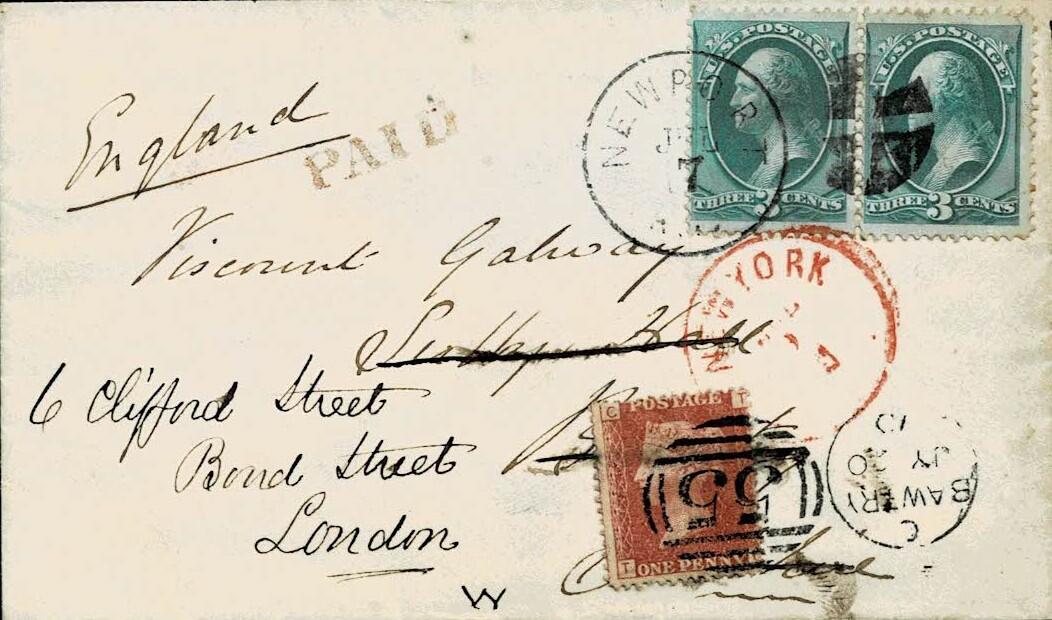 U.S. POSTAGE
U.S. POSTAGE
THREE 3 CENTS
THREE 3 CENTS
NEWPORT
JUL
7
England
PAID
Viscount Galway
NEW YORK
Hall
6 Clifford Street
Bond Street
London
C POSTAGE T
T ONE PENNY
55
BAWTRY
C
JY 20
W